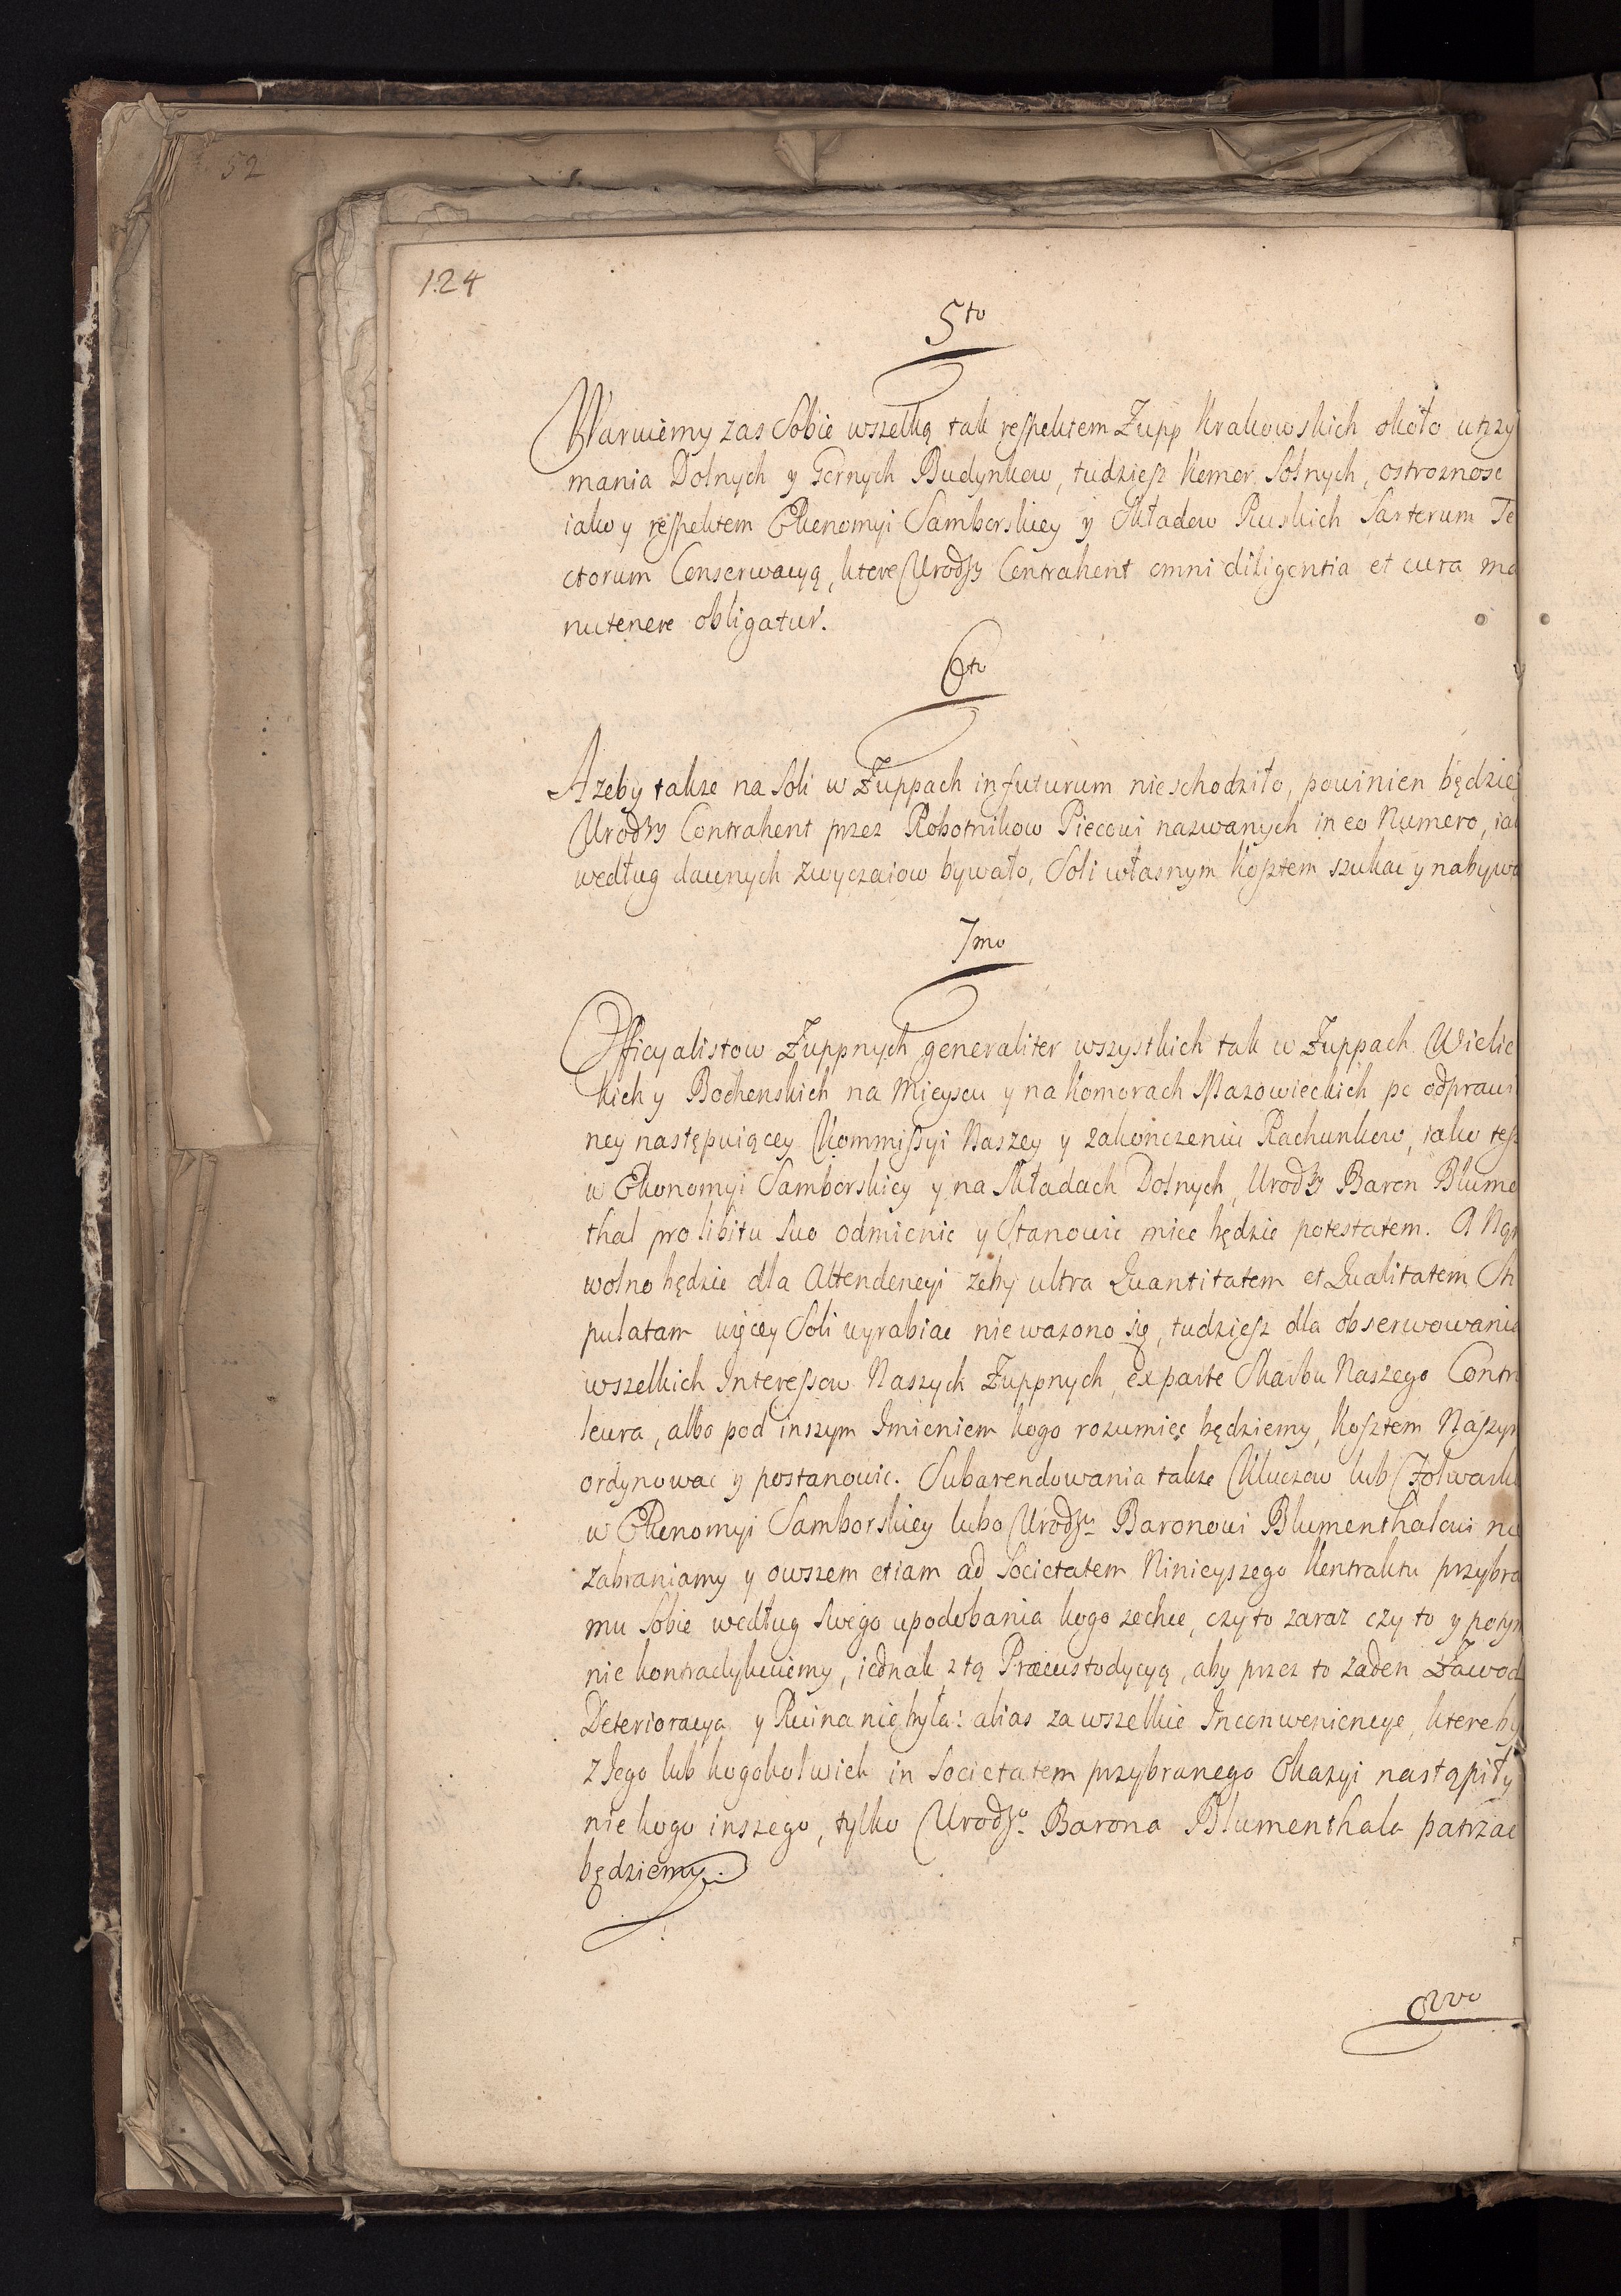 52
124
5to
Waruiemy zas Sobie wszelką tak respektem Zupp Krakowskich około utrzy
mania Dolnych y Gornych Budynkow, tudziesz Komor Solnych, ostroznosc
iako y respektem Ekonomyi Samborskiey y Składow Ruskich Sartorum Te
ctorum Conserwacyą, ktore Urodzy Contrahent omni diligentia et cura ma
nutenere obligatur.
6to
Azeby takze na Soli w Zuppach in futurum nie schodziło, powinien będzie
Urodzy Contrahent przez Robotnikow Piecowi nazwanych in eo Numero, iak
według dawnych zwyczaiow bywało, Soli własnym Kosztem szukac y nabywa
7mo
Officyalistow Zuppnych generaliter wszystkich tak w Zuppach Wielic
kich y Bochenskich na Mieyscu y na Komorach Mazowieckich po odprawi
ney następuiącey Kommissyi Naszey y zakończeniu Rachunkow, iako tesz
w Ekonomyi Samborskiey y na Składach Dolnych, Urodzy Baron Blume
thal pro libitu suo odmienic y Stanowic miec będzie potestatem. A Nam
wolno będzie dla Attendencyi zeby ultra Quantitatem et Qualitatem Sti
pulatam więcey Soli wyrabiac nie wazono się, tudziesz dla obserwowania
wszelkich Interessow Naszych Zuppnych, ex parte Skarbu Naszego Contro
leura, albo pod inszym Imieniem kogo rozumiec będziemy, Kosztem Naszym
ordynowac y postanowic. Subarendowania takze Kluczow lub Folwark
w Ekonomyi Samborskiey lubo Urodzu Baronowi Blumenthalowi nie
zabraniamy y owszem etiam ad Societatem Ninieyszego Kontraktu przybra
mu Sobie według Swego upodobania kogo zechce, czy to zaraz czy to y potym
nie kontradykuiemy, iednak z tą Præcustodycyą, aby przez to zaden Zawod
Deterioracya y Ruina nie była: alias za wszelkie Inconweniencye, ktoreby
z Iego lub kogokolwiek in Societatem przybranego Okazyi nastąpiły
nie kogo inszego, tylko Urodzo. Barona Blumenthala patrzac
będziemy.
8vo